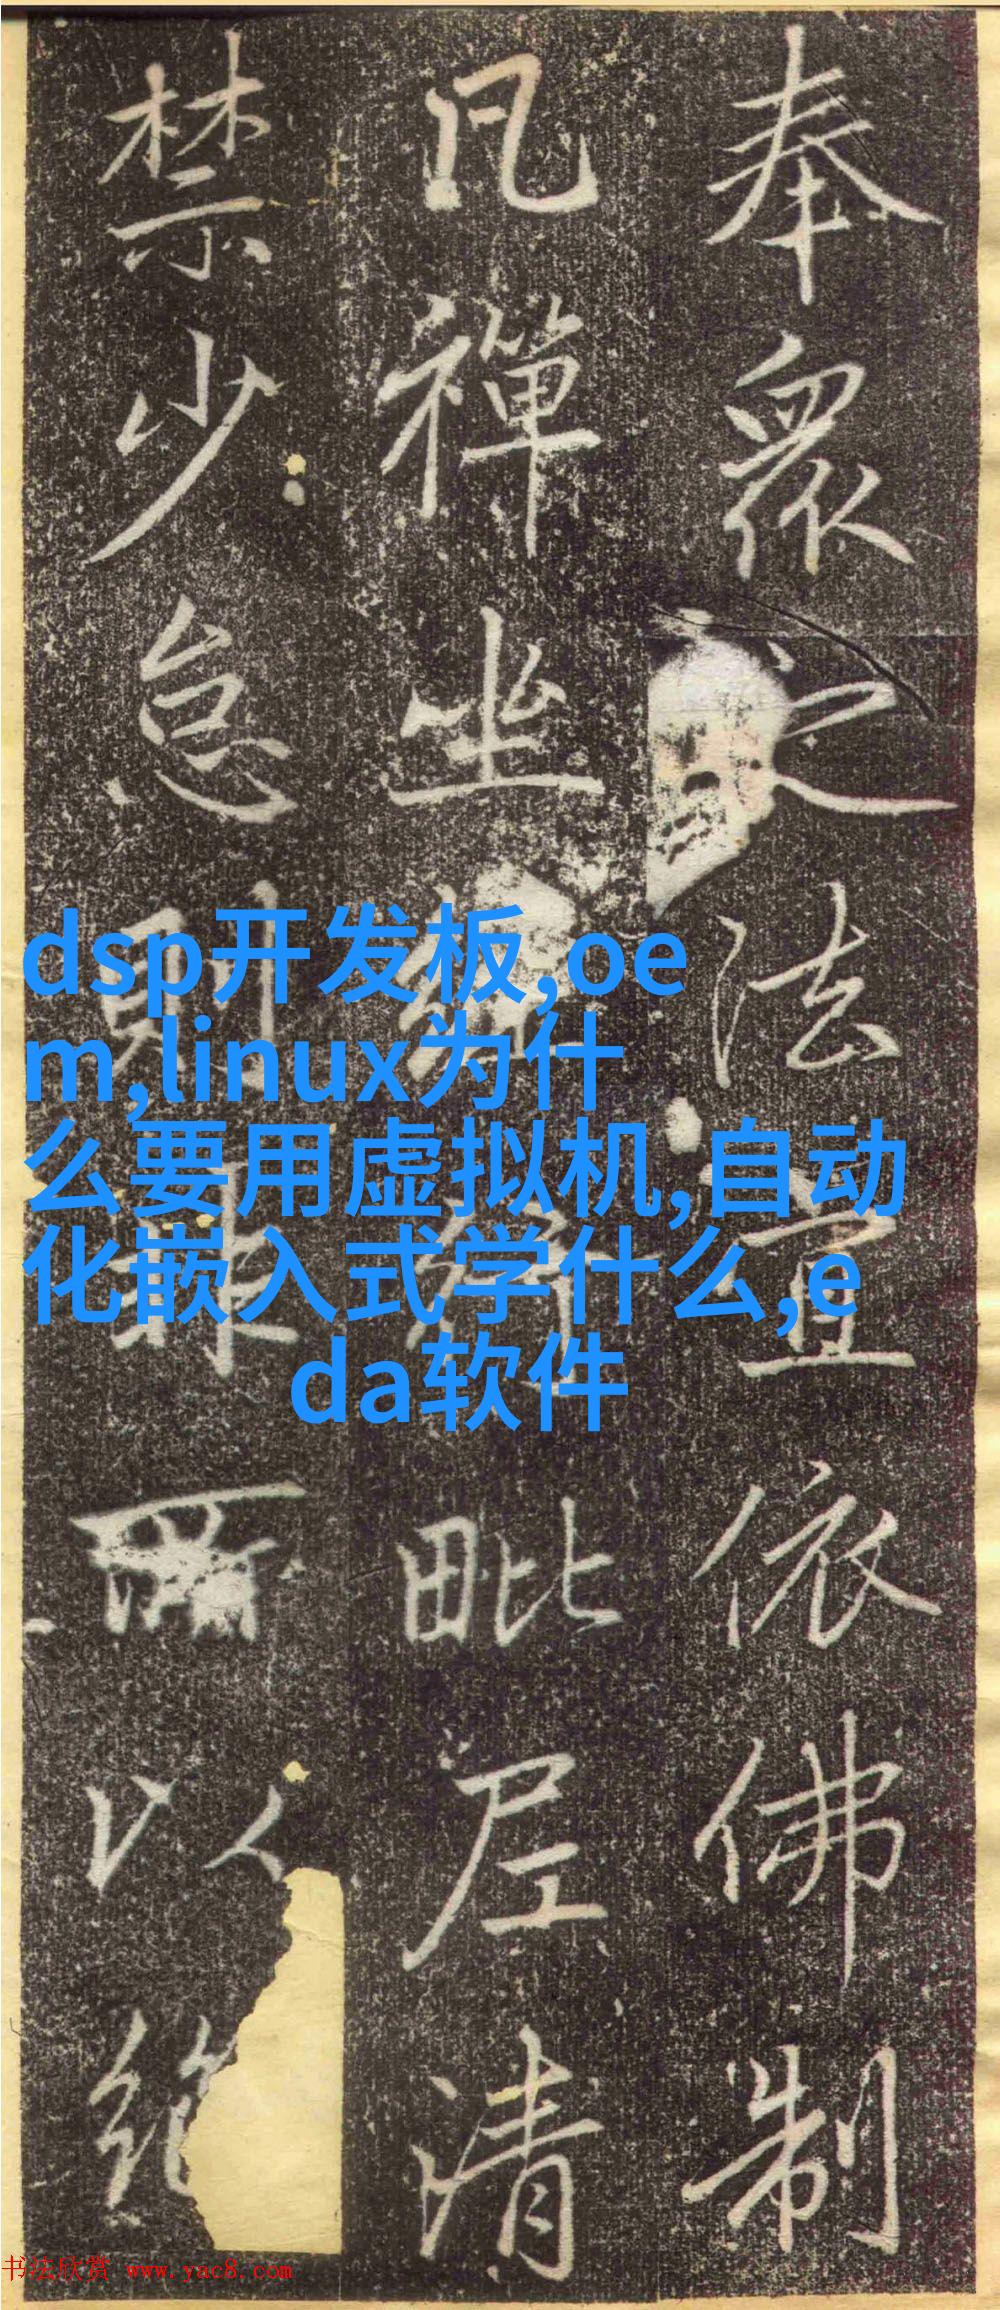 dsp开发板,oe
m,linux为什
么要用虚拟机,自动
化嵌入式学什么,e
da软件
奉眾之法宜依佛制
凡禪坐經行毗尼清
禁少怠則非所以
书法欣赏 www.yac8.com